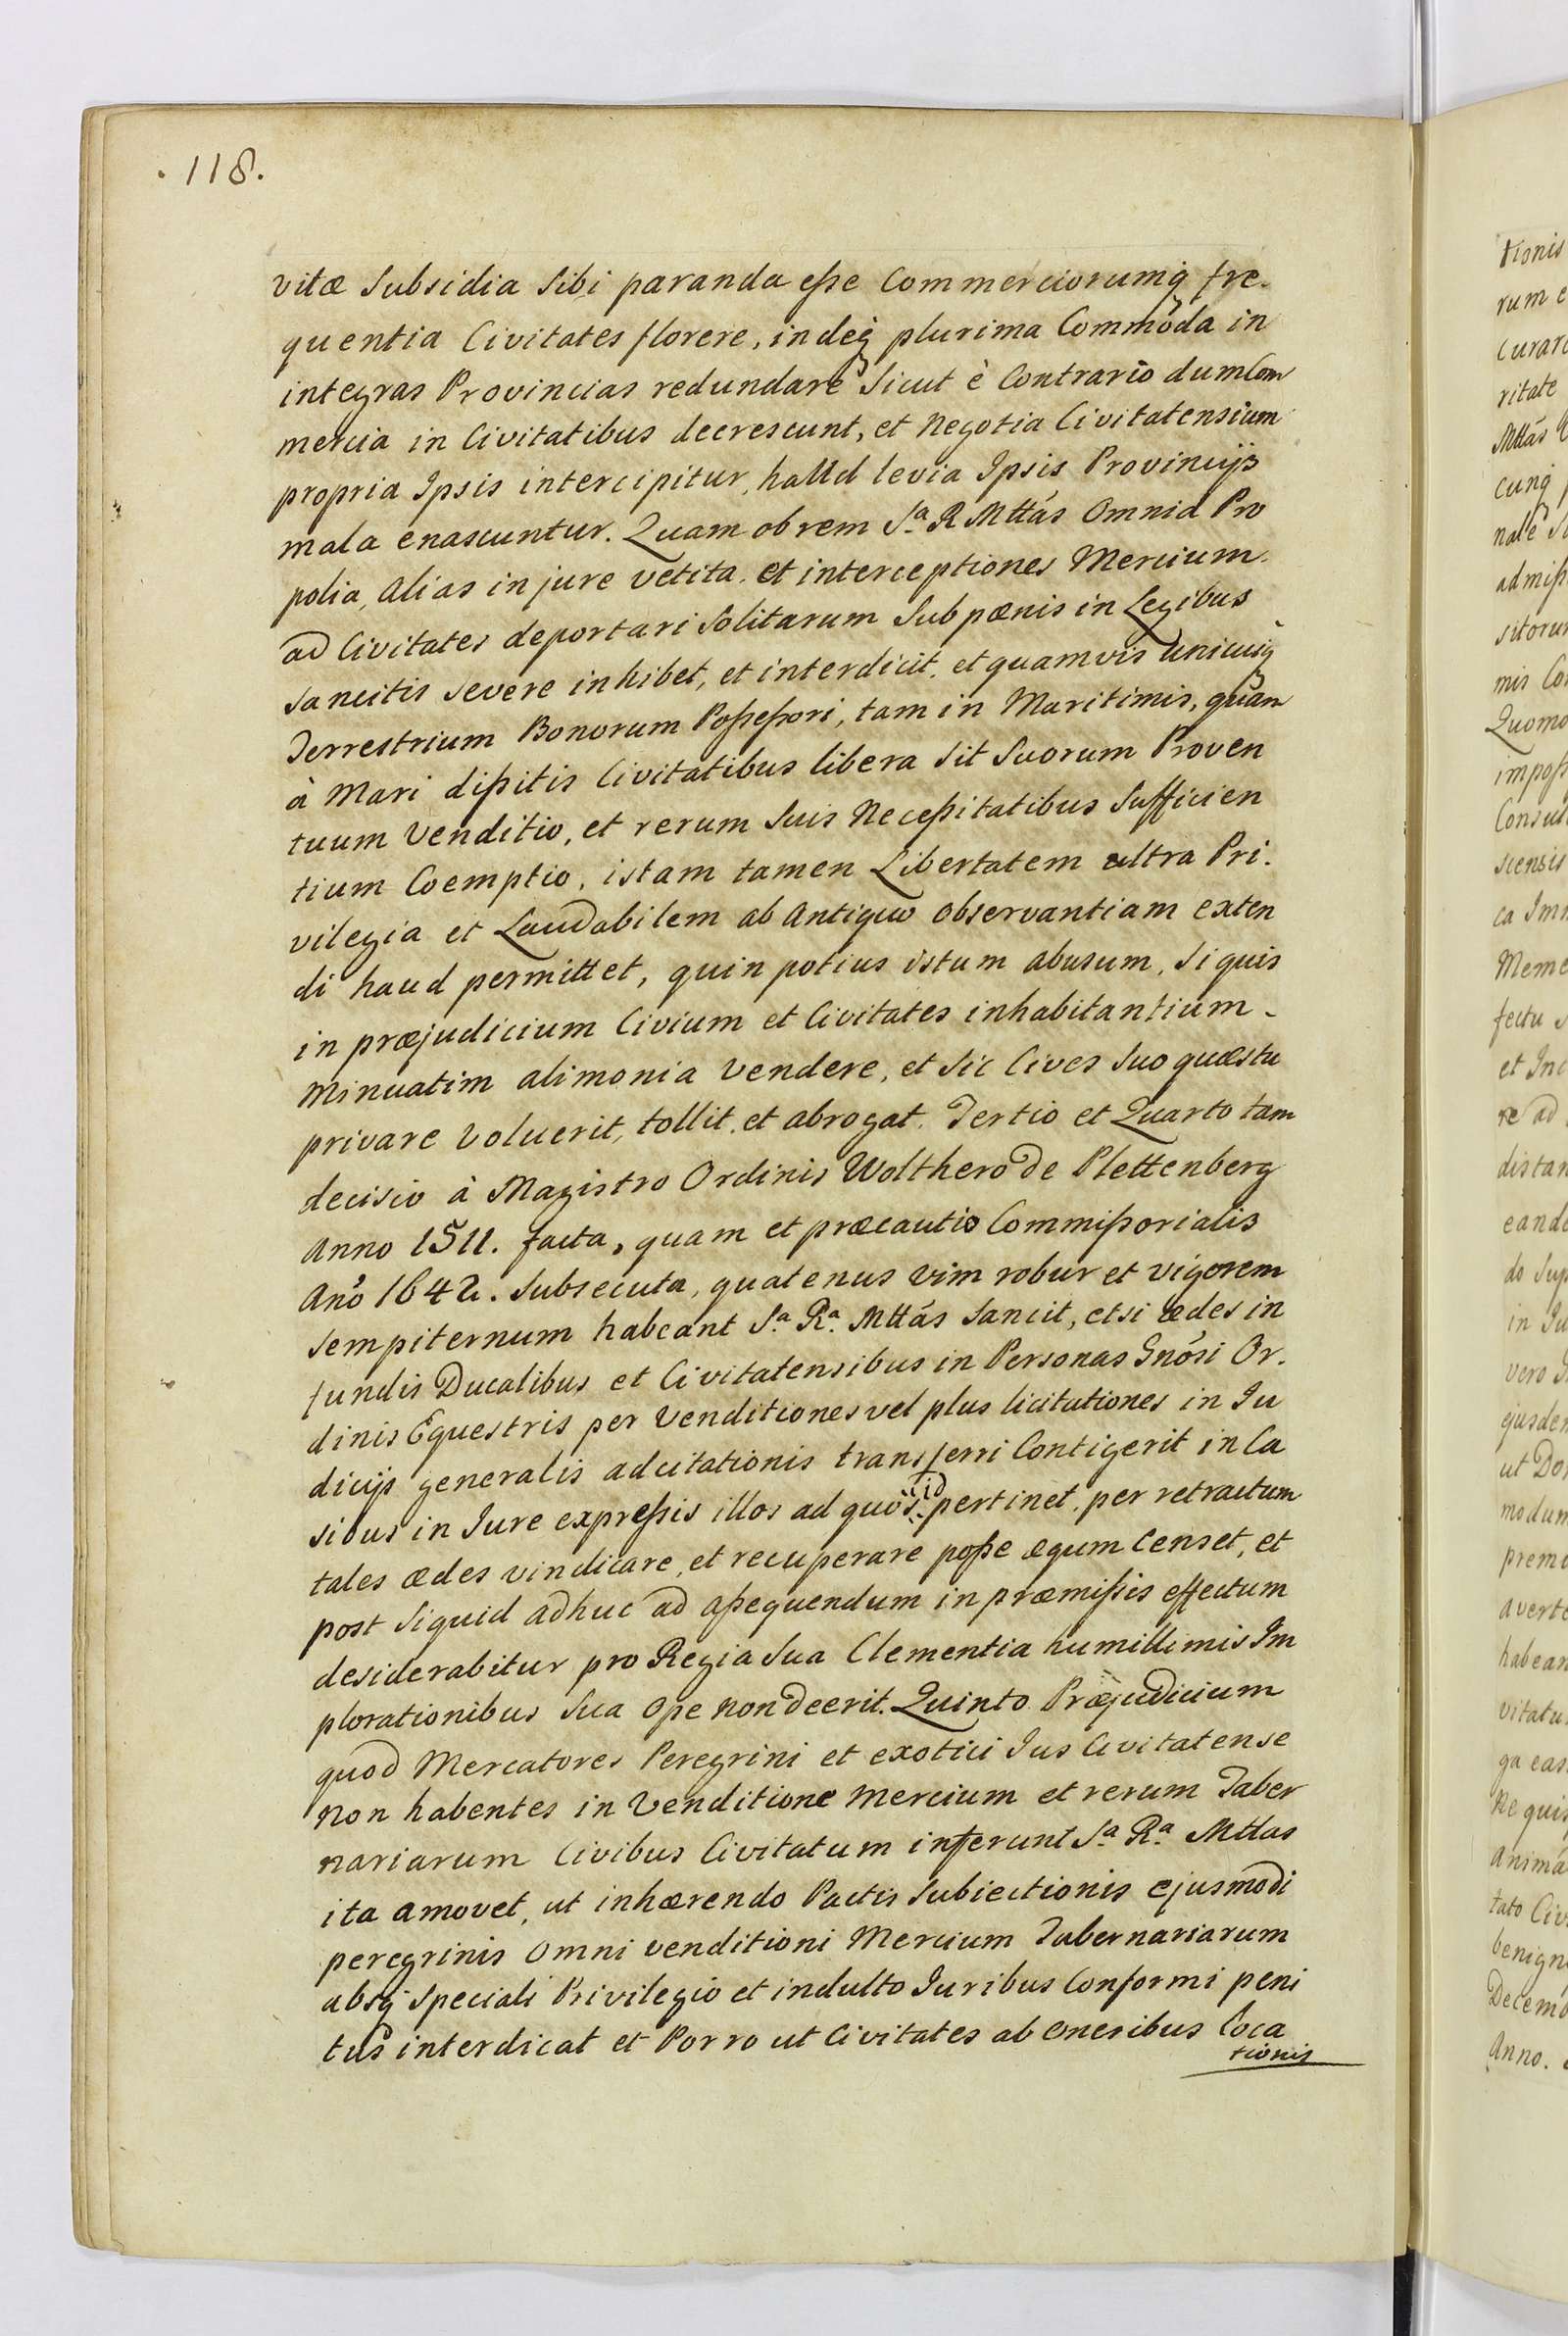 . 118.
vitæ Subsidia Sibi paranda eße Commerciorumq̢ fre-
quentia Civitates florere, indeq̢ plurima Commoda in
integras Provincias redundare Sicut è Contrario dum Com
mercia in Civitatibus decrescunt, et Negotia Civitatensium
propria Ipsis intercipitur, haud levia Ipsis Provincijs
mala enascuntur. Quam ob rem S.ᵃ R Mttás Omnia Pro
polia, Alias in jure vetita, et interceptiones Mercium
ad Civitates deportari Solitarum Sub pœnis in Legibus
Sancitis severe inhibet, et interdicit, et quamvis unicuiq̢
Terrestrium Bonorum Poßeßori, tam in Maritimis, quam
à Mari dißitis Civitatibus libera Sit Suorum Proven
tuum Venditio, et rerum Suis Neceßitatibus Sufficien
tium Coemptio, istam tamen Libertatem ultra Pri-
vilegia et Laudabilem ab Antiquo observantiam exten
di haud permittet, quin potius istum abusum, Si quis
in præjudicium Civium et Civitates inhabitantium -
Minuatim alimonia Vendere, et Sic Cives Suo quæstu
privare Voluerit, tollit, et abrogat. Tertio et Quarto tam
decisio à Magistro Ordinis Wolthero de Plettenberg
Anno 1511. facta, quam et præcautio Commißorialis
Anõ 1642. Subsecuta, quatenus vim robur et vigorem
Sempiternum habeant S.ᵃ R.ᵃ Mttás Sancit, etsi ædes in
fundis Ducalibus et Civitatensibus in Personas Gnósi Or-
dinis Equestris per Venditiones vel plus licitationes in Iu
dicijs generalis adcitationis transferri Contigerit in Ca
sibus in Jure expreßis illos ad quos id pertinet, per retractum
tales ædes vindicare, et recuperare poße æqum Censet, et
post Siquid adhuc ad aßequendum in præmißis effectum
desiderabitur pro Regia Sua Clementia humillimis Im
plorationibus Sua Ope non deerit. Quinto Præjudicium
quod Mercatores Peregrini et exotici Jus Civitatense
Non habentes in Venditione Mercium et rerum Taber
nariarum Civibus Civitatum inferunt S.ᵃ R.ᵃ Mttas
ita amovet, ut inhærendo Pactis Subiectionis ejusmodi
peregrinis Omni venditioni Mercium Tabernariarum
absq̢ Speciali Privilegio et indulto Juribus Conformi peni
tus interdicat et Porro ut Civitates ab Oneribus Loca
tionis
tionis
rum
ritate
Mttás
cunq̢
admiß
sitorum
mis
Quomo
impoß
Consul
ca
Meme
fectu
et
re ad
distan
in
vero
ejusdem
ut
modum
averte
habean
vitatu
ga eas
Ne quis
Anima
tato Civ
benign
Decemb
Anno.